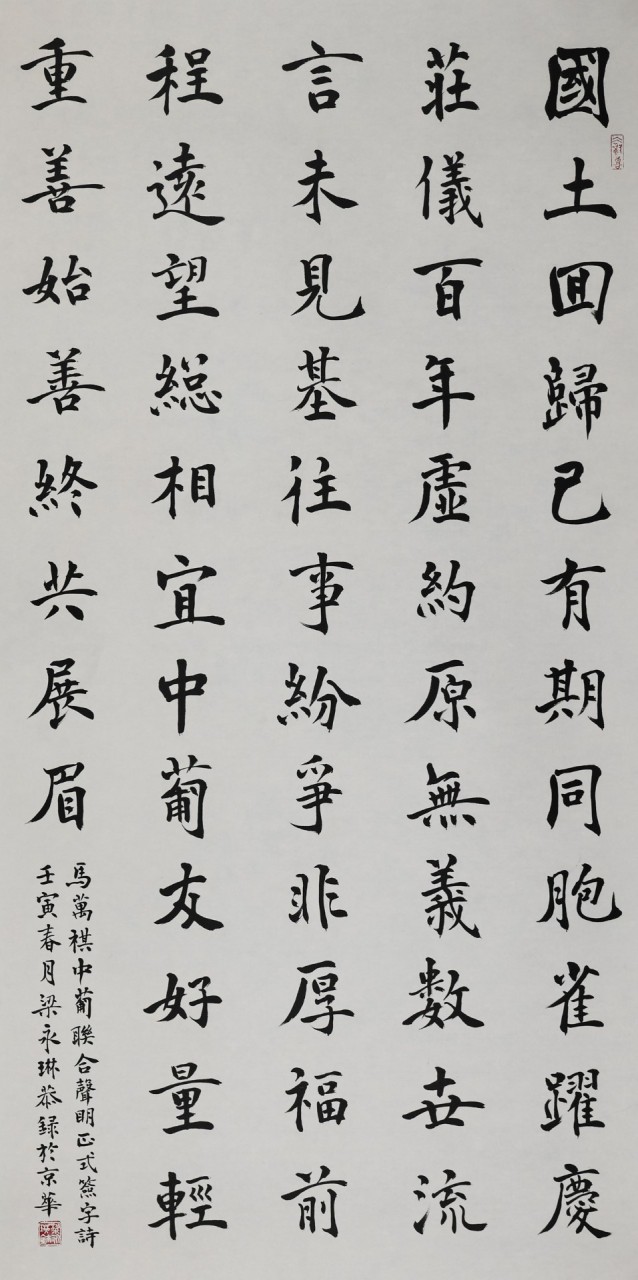 國土回歸已有期同胞雀躍慶
莊儀百年虛約原無義數世流
言未見基往事紛爭非厚福前
程遠望總相宜中葡友好量輕
重善始善終共展眉
馬萬祺中葡聯合聲明正式簽字詩
壬寅春月梁永琳恭録於京華